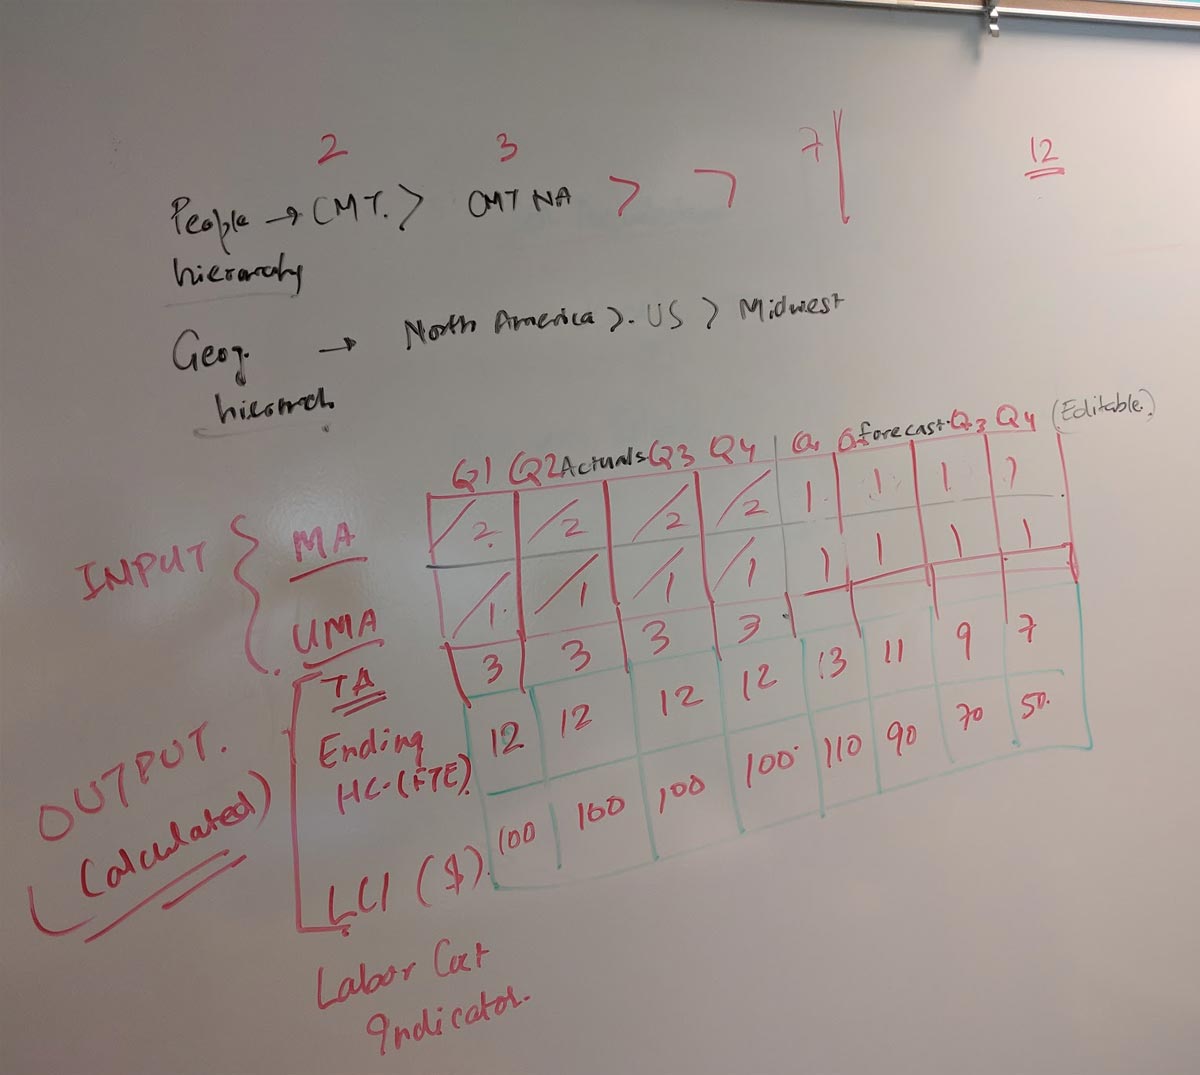 2 3 7 12
People → CMT. > CMT NA > >
hierarchy
Geog. → North America >. US > Midwest
hierarch.
Q1 Q2 Actuals Q3 Q4 Q1 forecast. Q3 Q4 (Editable.)
INPUT { MA 2. 2 2 2 1 1 1 1
UMA 1. 1 1 1 1 1 1 1
TA 3 3 3 3
OUTPUT.
(Calculated)
Ending 12 12 12 12 13 11 9 7
HC-(FTE)
LCI ($). 100 100 100 100 110 90 70 50.
Labor Cost
Indicator.